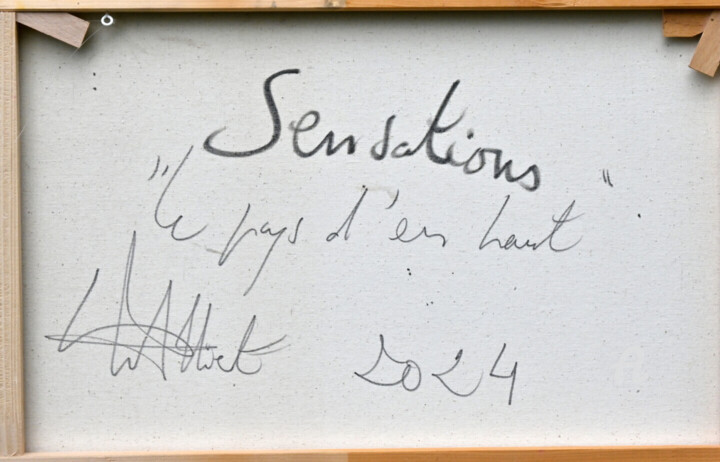 Sensations
"Le pays d'en haut"
2024